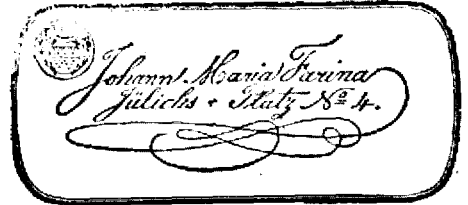 Johann Maria Farina
Jülichs + Platz No 4.